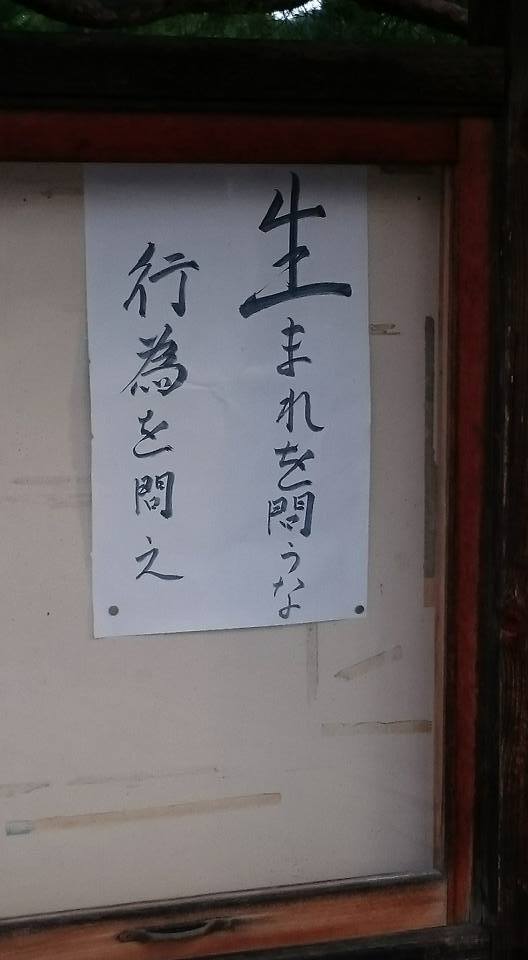 生まれを問うな
行為を問え